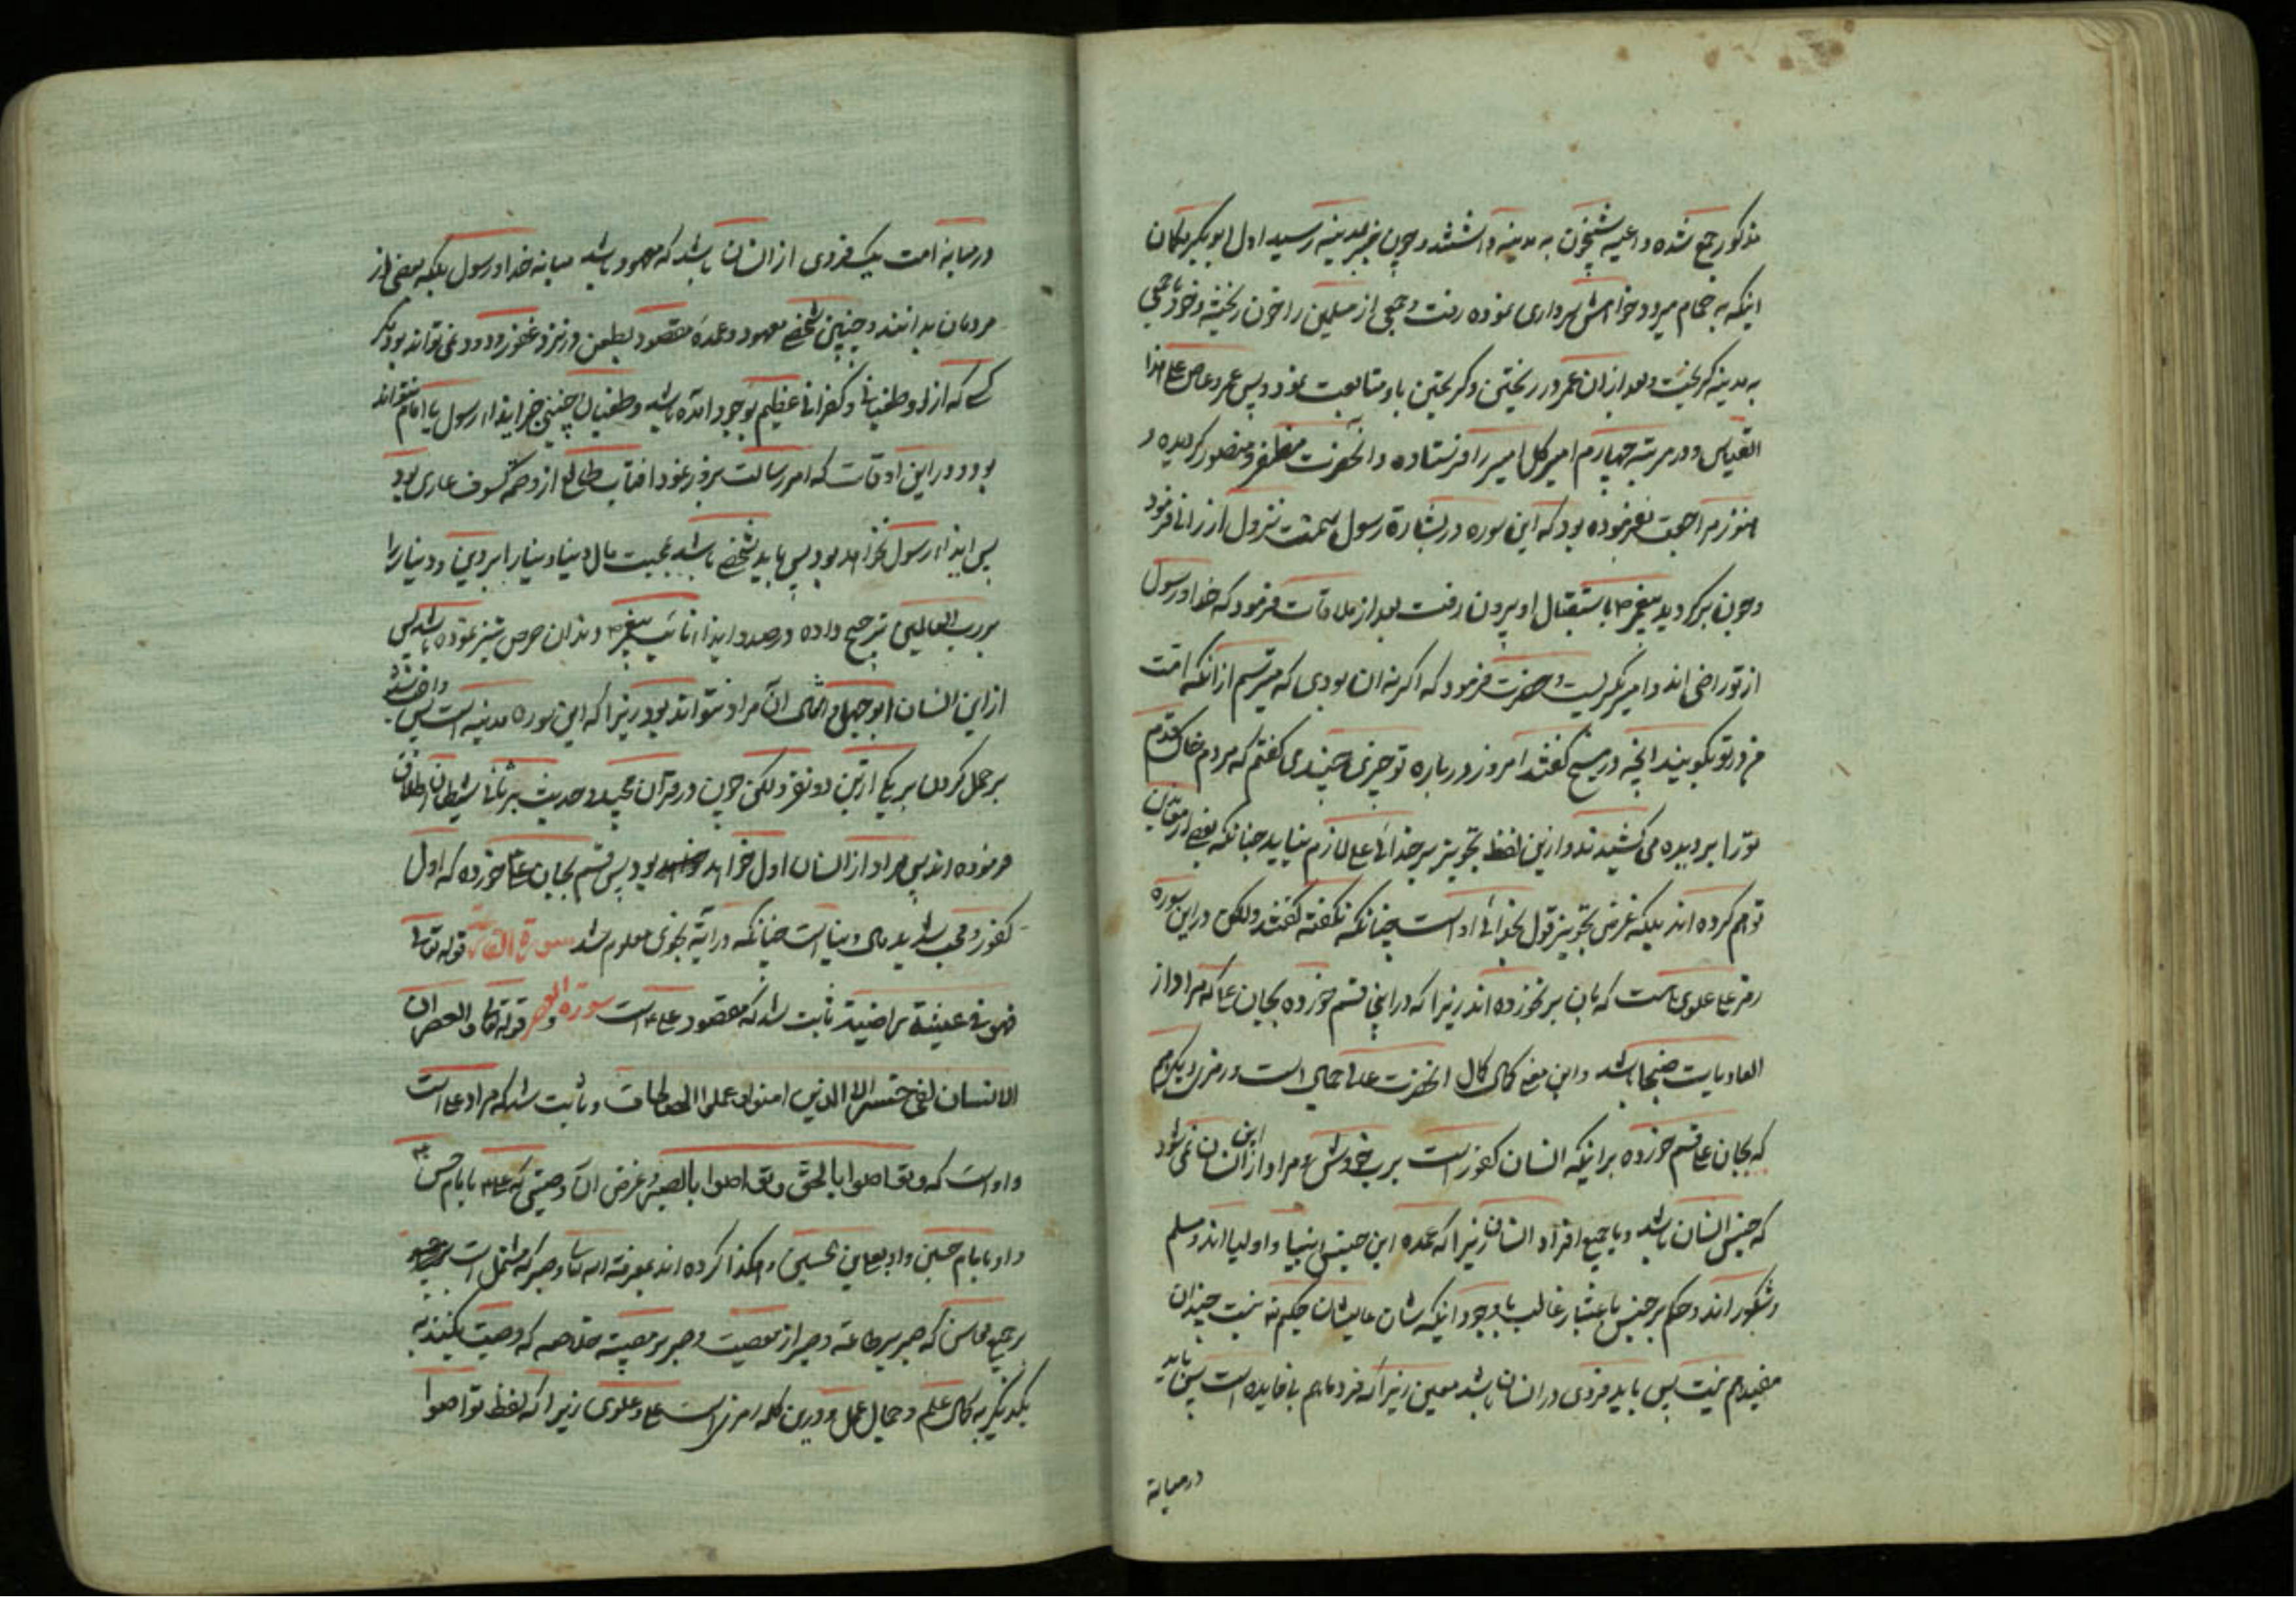 مذکور جمع شده داعیه شبخون به مدینه داشتند و چون خبر بمدینه رسید اول ابوبکر بکمان
اینکه به حمام میرود خواهش سرداری نموده رفت و جمعی از مسلمین را خون ریخته و خود با جمعی
به مدینه کریخت و بعد از ان عمر در ریختن و کریختن باو متابعت نمود و پس عمرو عاص علی هذا
القیاس و در مرتبه چهارم امیر کل امیر را فرستاده و انحضرت مظفر و منصور کردیده و
هنوز مراجعت نفرموده بود که این سوره در بشارة رسول سمت نزول ارزانی فرمود
و چون برکردید پیغمبر ص باستقبال او بیرون رفت بعد از ملاقات فرمود که خدا و رسول
از تو راضی اند و امیر بکریست و حضرت فرمود که اکر نه ان بودی که میترسم از انکه امت
من در تو بکویند انچه در مسیح کفتند امروز در باره تو چیزی چندی کفتم که مردم خاک قدم
تو را بر دیده می کشیدند و ازین لفظ تجویز بر خدائی علی لازم نیاید چنانکه بعضی از
توهم کرده اند بلکه غرض تجویز قول بخدائی اوست چنانکه نکفته کفتند ولکن در این سوره
رمز علی علوی هست که بان بر نخورده اند زیرا که در اینجا قسم خورده بجان علی که مراد از
العادیات ضبحا باشد و این معنی کمال کمال انحضرت علی عالی است و رمز دیکر هم
که بجان علی قسم خورده بر اینکه انسان کفور است برب خودش و مراد از این انسان نمی شود
که جنس انسان باشد و یا جمیع افراد انسان زیرا که عمده این جنس انبیا و اولیا اند و مسلم
و شکور اند و حکم بر جنس باعتبار غالب با وجود اینکه شان عالیشان حکیم نه نیست چندان
مفید هم نیست پس باید فردی در انسان باشد معین زیرا که فرد ما هم بی فایده است پس باید
درمیانه
درمیانه امت یک فردی از انسان باشد که معهود باشد میانه خدا و رسول بلکه بعضی از
مردمان بدانند و چنین شخصی معهود و عمده مقصود بطعن و رمز و غفور و ودود نمی تواند بود مکر
کسی که از او طغیانی و کفرانی عظیم بوجود امده باشد و طغیان اجنبی جز ایذاء رسول یا امام نتواند
بود و در این اوقات که امر رسالت بروز نمود افتاب طالع از وصمه کسوف عاری بود
پس ایذاء رسول نخواهد بود پس باید شخصی باشد بمحبت مال دنیا و دنیا را بر دین و دنیا را
بر رب العالمین ترجیح داده و در صدد ایذاء نائب پیغمبر ص و بذان حرص تیز نموده باشد پس
از این انسان ابوجهل و امثال ان مراد نتواند بود زیرا که این سوره مدینه است پس
بر حمل کردن بر یکی ازین دو نفر ولکن چون در قرآن مجید و حدیث بر ثانی شیطان اطلاق
فرموده اند پس مراد از انسان اول خواهد بود پس قسم بجان علی خورده که اول
کفور و محب شدید مال دنیا است چنانکه در آیه نجوی معلوم شد سورة القارعة قوله تعالی
فهو فی عیشة راضیة ثابت شد که مقصود علی ع است و سورة العصر قوله تعالی و العصر ان
الانسان لفی خسر الا الذین امنوا و عملوا الصالحات و ثابت شد که مراد علی است
و او است که وتواصوا بالحق وتواصوا بالصبر و غرض ان وصیتی که علی ع با امام حسن ع
و او با امام حسین و او بعلی بن الحسین و هکذا کرده اند بمعرفة الله تعالی و صبر که مشتمل است
بر جمیع محاسن که صبر بر طاعة و صبر از معصیت و صبر بر مصیبة خلاصه که وصیت بکنند به
یکدیکر به کمال علم و جمال عمل و درین کلمه رمزیست علی و علوی زیرا که لفظ تواصوا